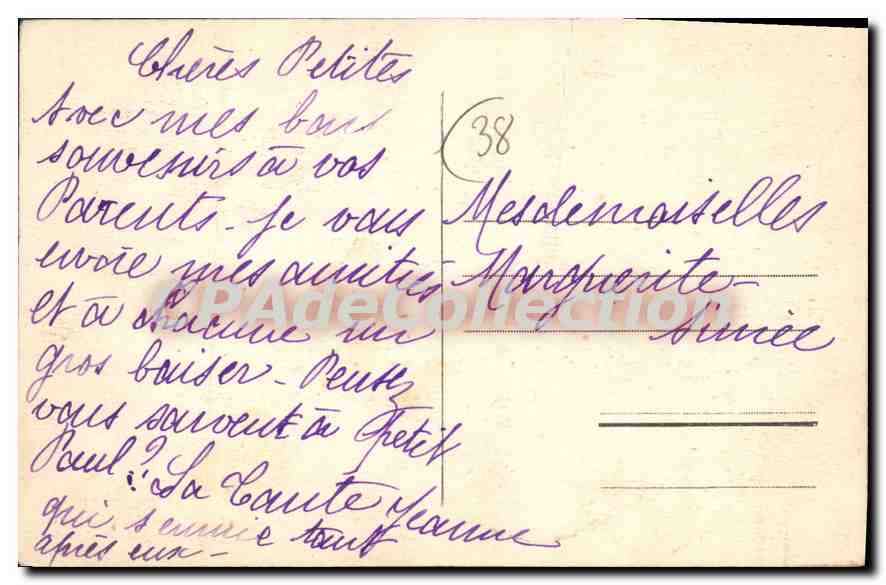 Chères Petites
Avec mes bons
souvenirs à vos
Parents - Je vous
envoie mes amitiés
et à chacune un
gros baiser - Pensez
vous souvent à Petit
Paul? La Tante Jeanne
qui s'ennuie tant
après eux -
38
Mesdemoiselles
Marguerite -
Aimée
CPAdeCollection